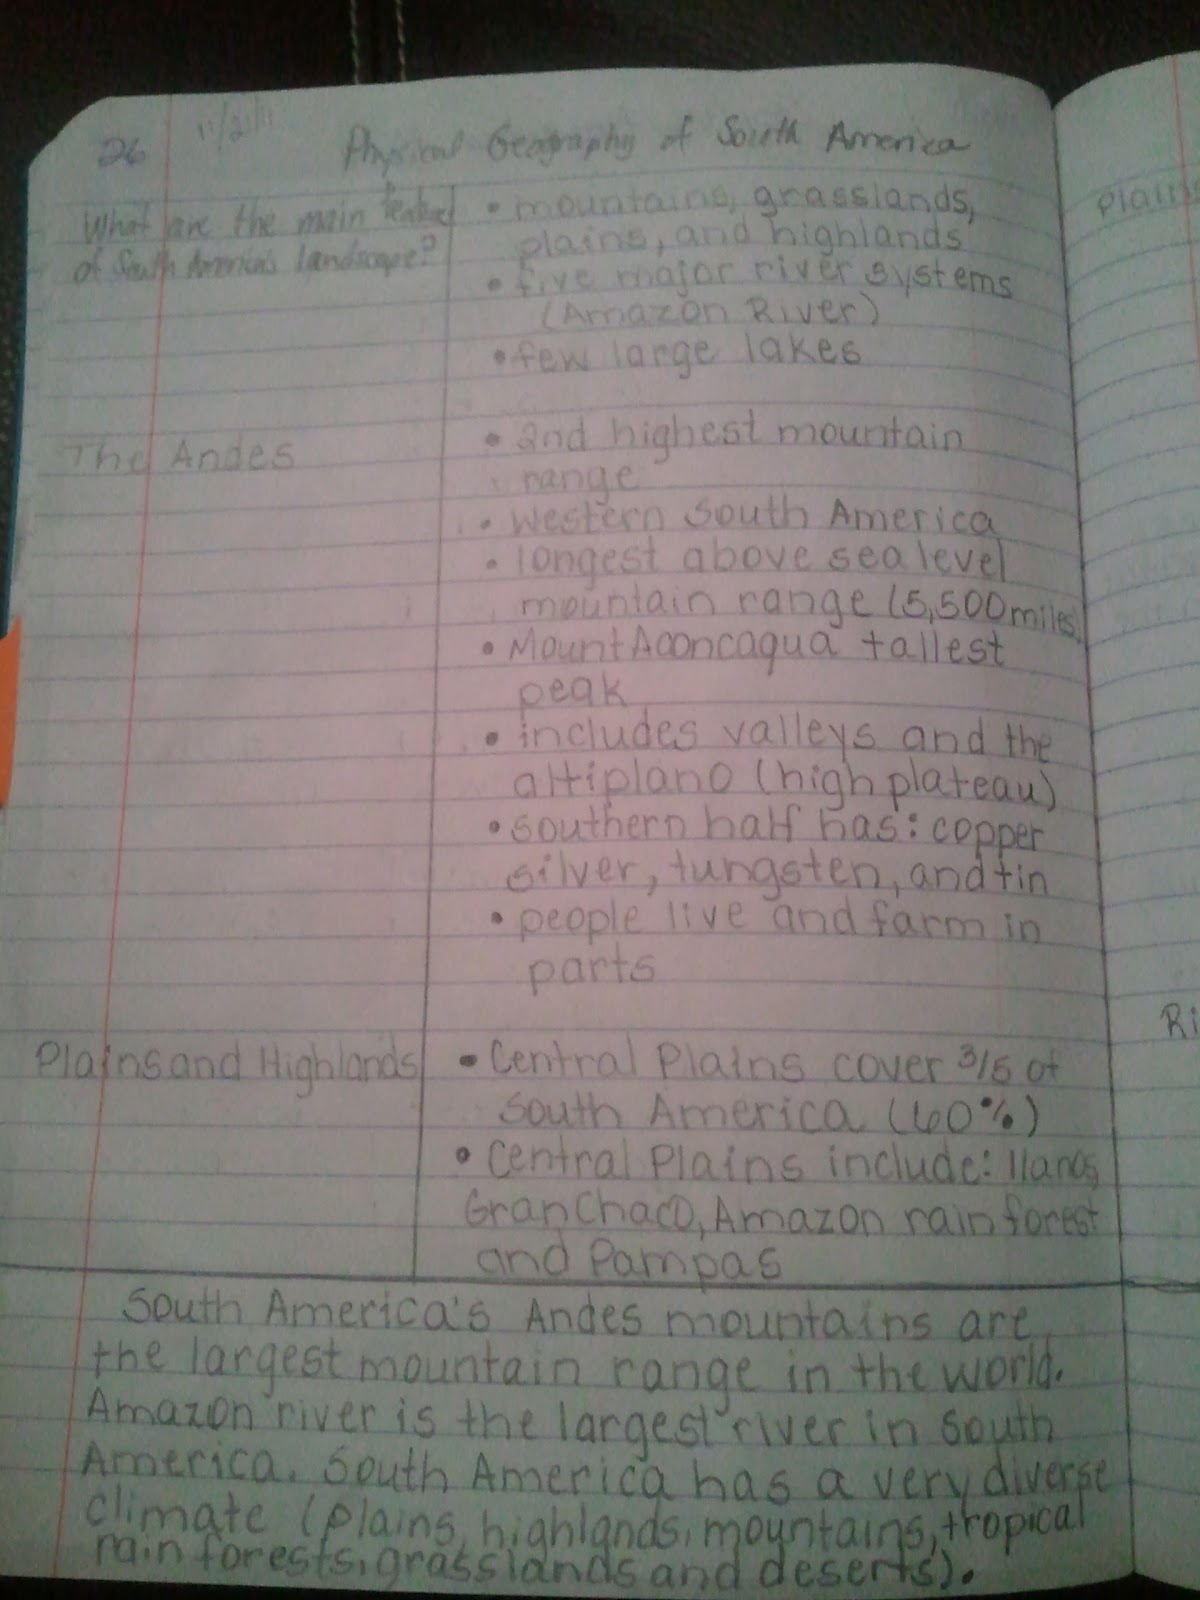 26
11/21/11
Physical Geography of South America
What are the main features
of South America's landscape?
• mountains, grasslands,
plains, and highlands
• five major river systems
(Amazon River)
• few large lakes
The Andes
• 2nd highest mountain
range
• western South America
• longest above sea level
mountain range (5,500 miles)
• Mount Aconcagua tallest
peak
• includes valleys and the
altiplano (high plateau)
• southern half has: copper
silver, tungsten, and tin
• people live and farm in
parts
Plains and Highlands
• Central Plains cover 3/5 of
South America (60%)
• Central Plains include: llanos,
Gran Chaco, Amazon rain forest
and Pampas
South America's Andes mountains are
the largest mountain range in the world.
Amazon river is the largest river in South
America. South America has a very diverse
climate (plains, highlands, mountains, tropical
rain forests, grasslands and deserts).
Plains
Ri